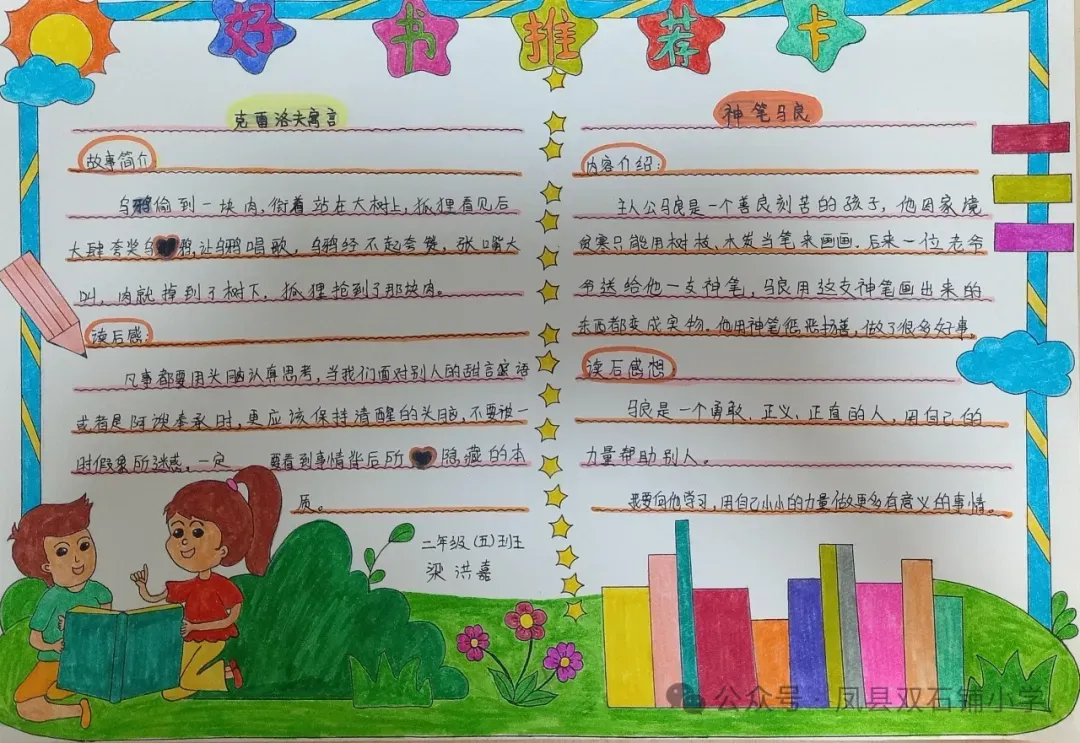 好书推荐卡
克雷洛夫寓言
故事简介
乌鸦偷到一块肉,衔着站在大树上,狐狸看见后
大肆夸奖乌鸦,让乌鸦唱歌,乌鸦经不起夸赞,张嘴大
叫,肉就掉到了树下,狐狸抢到了那块肉。
读后感:
凡事都要用头脑认真思考,当我们面对别人的甜言蜜语
或者是阿谀奉承时,更应该保持清醒的头脑,不要被一
时假象所迷惑,一定要看到事情背后所隐藏的本
质。
二年级(五)班
梁洪嘉
神笔马良
内容介绍:
主人公马良是一个善良刻苦的孩子,他因家境
贫寒只能用树枝、木炭当笔来画画.后来一位老爷
爷送给他一支神笔,马良用这支神笔画出来的
东西都变成实物.他用神笔惩恶扬善,做了很多好事.
读后感想.
马良是一个勇敢、正义、正直的人,用自己的
力量帮助别人。
我要向他学习,用自己小小的力量做更多有意义的事情。
公众号·凤县双石铺小学